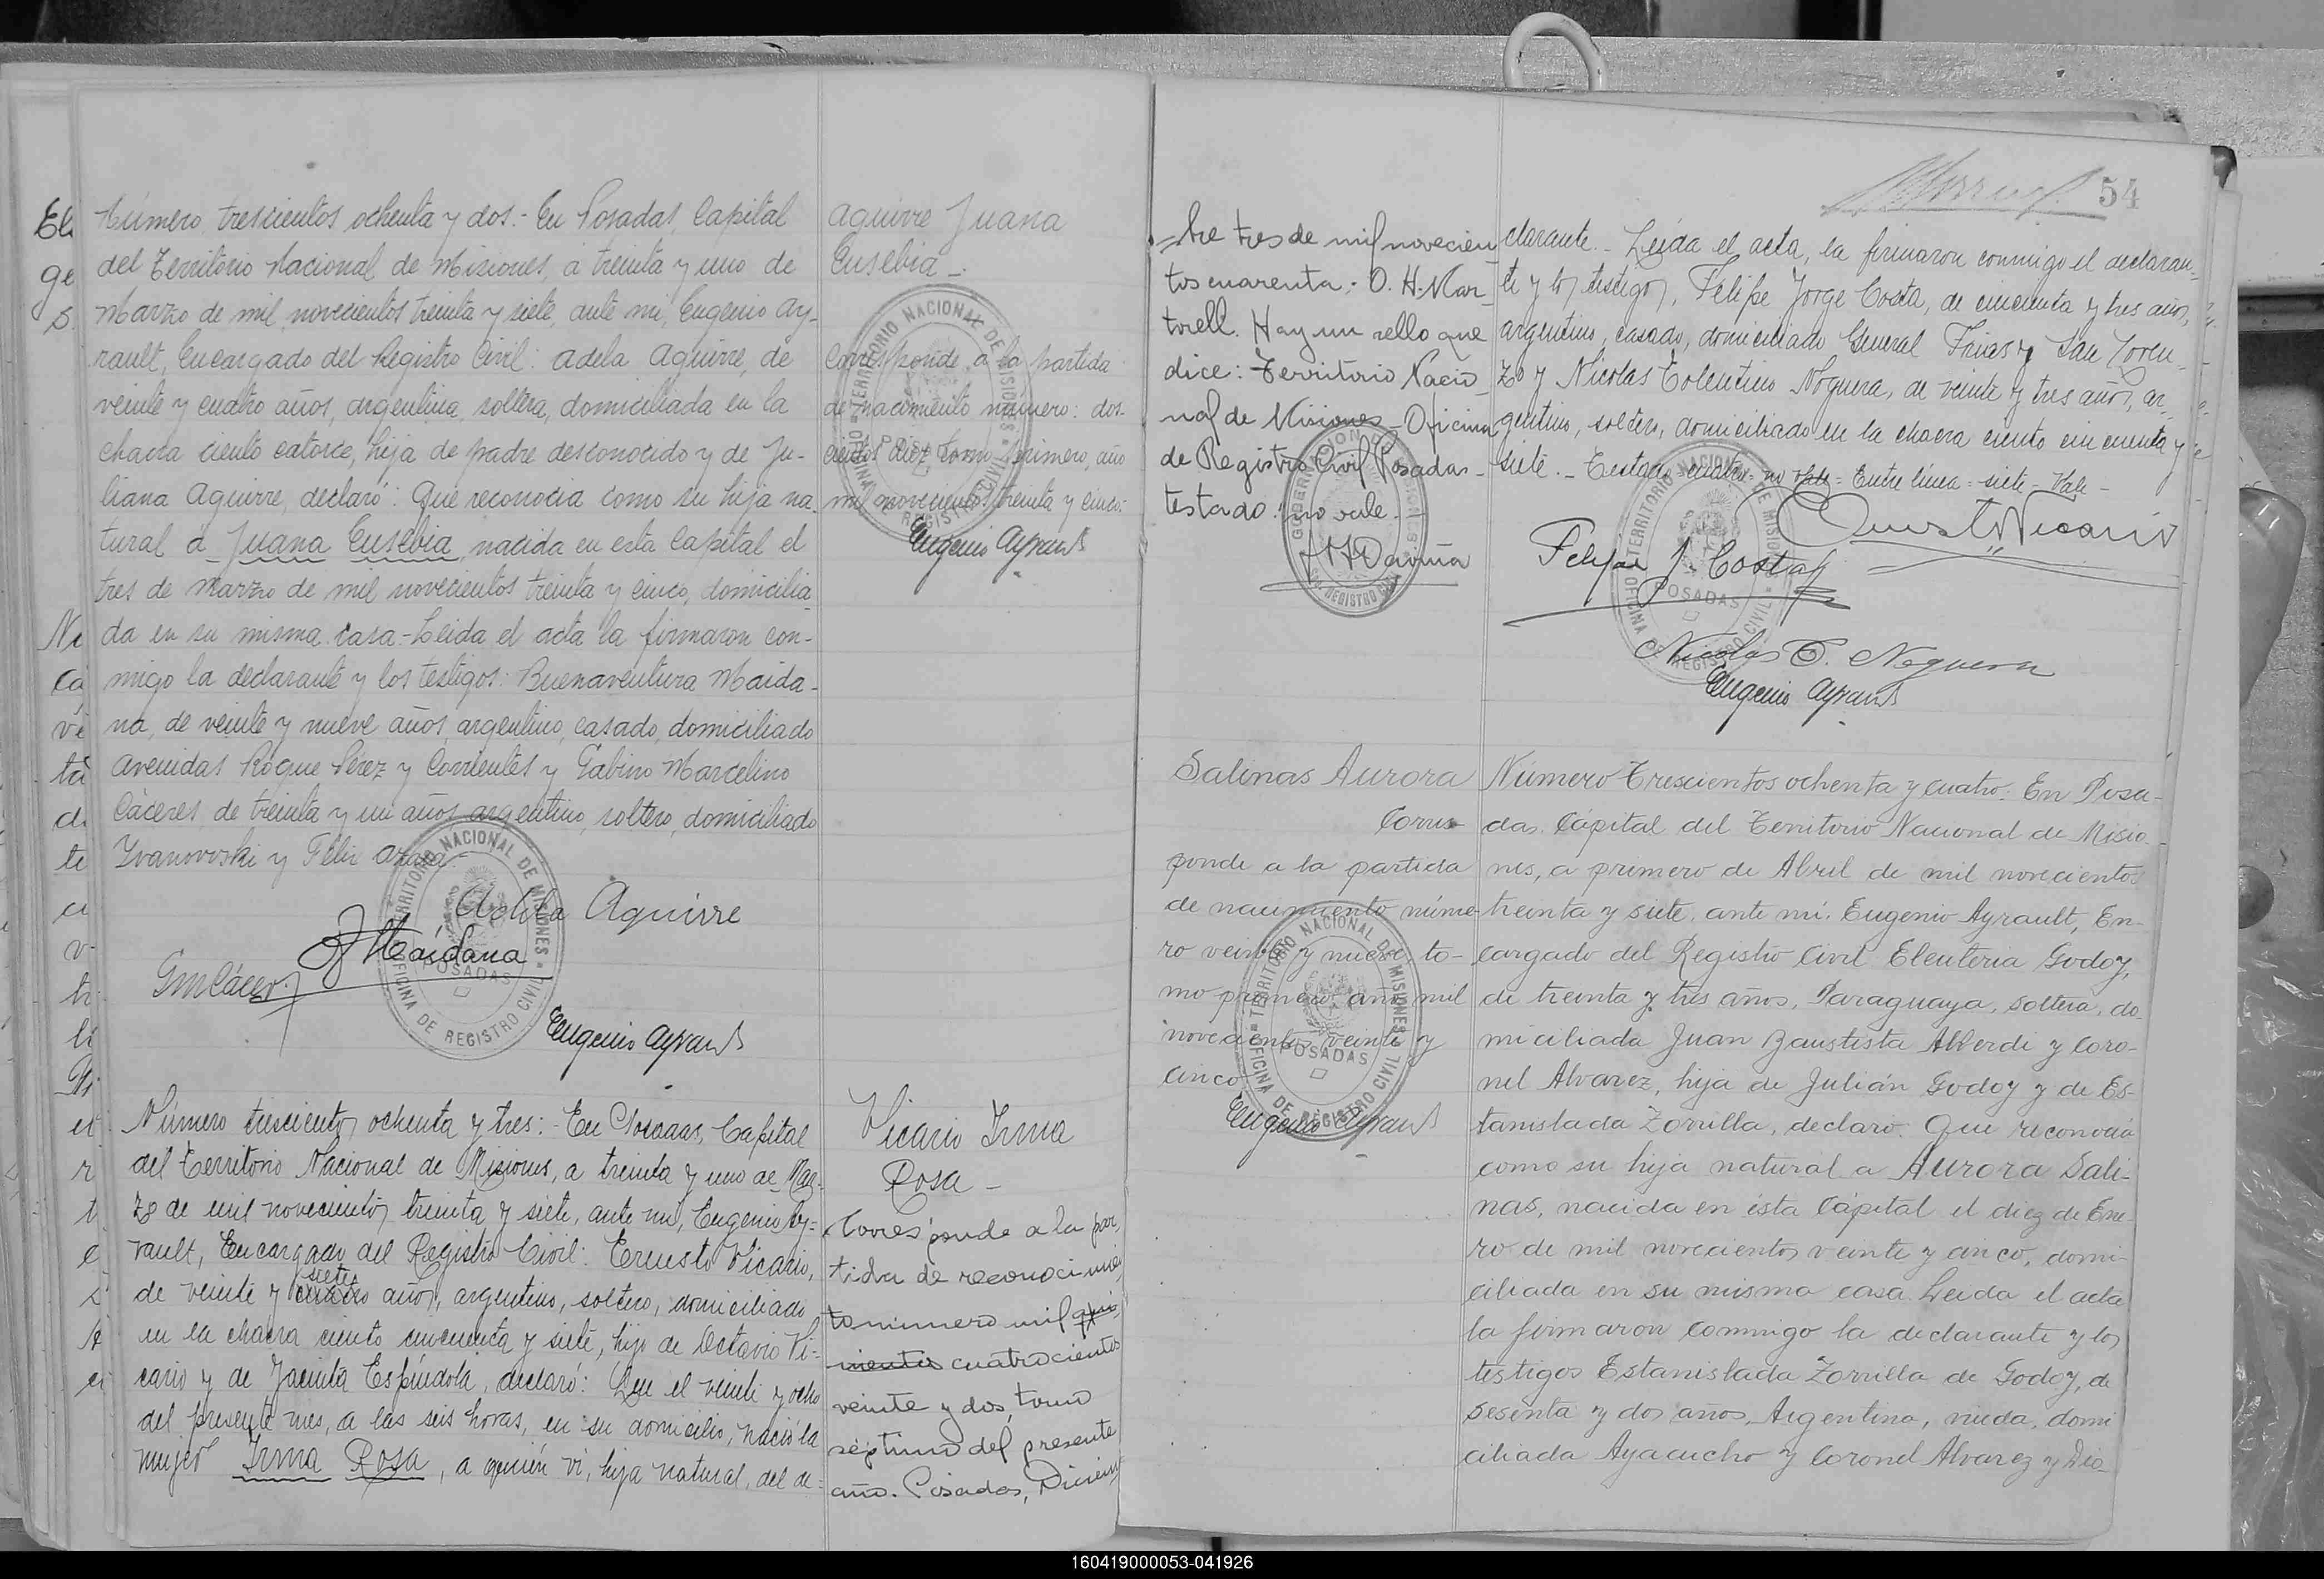 Número trescientos ochenta y dos.- En Posadas, Capital
del Territorio Nacional de Misiones, a treinta y uno de
Marzo de mil novecientos treinta y siete, ante mi, Eugenio Ay-
rault, Encargado del Registro Civil: Adela Aguirre, de
veinte y cuatro años, argentina, soltera, domiciliada en la
chacra ciento catorce, hija de padre desconocido y de Ju-
liana Aguirre, declaró: Que reconocia como su hija na-
tural a Juana Eusebia, nacida en esta Capital el
tres de Marzo de mil novecientos treinta y cinco, domicilia-
da en su misma casa.- Leida el acta la firmaron con-
migo la declarante y los testigos: Buenaventura Maida-
na, de veinte y nueve años, argentino, casado, domiciliado
Avenidas Roque Pérez y Corrientes y Gabino Marcelino
Cáceres, de treinta y un años, argentino, soltero, domiciliado
Ivanovski y Félix Azara.-
Adela Aguirre
B Maidana
GmCáceres
Eugenio Ayrault
Aguirre Juana
Eusebia -.
Corresponde a la partida
de nacimiento número: dos-
cientos diez, tomo primero, año
mil novecientos treinta y cinco.
Eugenio Ayrault
TERRITORIO NACIONAL DE MISIONES
OFICINA DE REGISTRO CIVIL
POSADAS
Número trescientos ochenta y tres:- En Posadas, Capital
del Territorio Nacional de Misiones, a treinta y uno de Mar-
zo de mil novecientos treinta y siete, ante mi, Eugenio Ay=
rault, Encargado del Registro Civil: Ernesto Vicario,
siete
de veinte y cuatro años, argentino, soltero, domiciliado
en la chacra ciento cincuenta y siete, hijo de Octavio Vi=
cario y de Jacinta Espíndola, declaró: Que el veinte y ocho
del presente mes, a las seis horas, en su domicilio, nació la
mujer Irma Rosa, a quién vi, hija natural, del de=
Vicario Irma
Rosa -
Corresponde a la par-
tida de reconocimien
to número mil qui-
nientos cuatrocientos
veinte y dos, tomo
séptimo del presente
año. Posadas, Diciem-
bre tres de mil novecien
tos cuarenta.- O. H. Mar-
torell. Hay un sello que
dice: Territorio Nacio
nal de Misiones - Oficina
de Registro Civil Posadas -
testado: no vale.-
54
clarante.- Leída el acta, la firmaron conmigo el declaran-
te y los testigos, Felipe Jorge Costa, de cincuenta y tres años,
argentino, casado, domiciliado General Frias y San Loren
zo y Nicolas Tolentino Noguera, de veinte y tres años, ar-
gentino, soltero, domiciliado en la chacra ciento cincuenta y
siete.- Testado= cuatro= no vale= Entre línea= siete- Vale-
Ernesto Vicario
Felipe J. Costa
Nicolas T. Noguera
Eugenio Ayrault
TERRITORIO NACIONAL DE MISIONES
OFICINA DE REGISTRO CIVIL
POSADAS
Salinas Aurora
Corres-
ponde a la partida
de nacimiento núme-
ro veinte y nueve, to-
mo primero año mil
novecientos veinte y
cinco
Eugenio Ayrault
Número Trescientos ochenta y cuatro. En Posa-
das. Cápital del Territorio Nacional de Misio-
nes, a primero de Abril de mil novecientos
treinta y siete, ante mí. Eugenio Ayrault, En-
cargado del Registro Civil Eleuteria Godoy,
de treinta y tres años, Paraguaya, soltera, do-
miciliada Juan Baustista Alberdi y Coro-
nel Alvarez, hija de Julián Godoy y de Es-
tanislada Zorrilla, declaró. Que reconocia
como su hija natural a Aurora Sali-
nas, nacida en ésta Cápital el diez de Ene-
ro de mil novecientos veinte y cinco, domi-
ciliada en su misma casa. Leida el acta
la firmaron conmigo la declarante y los
testigos Estanislada Zorrilla de Godoy, de
sesenta y dos años, Argentina, viuda, domi
ciliada Ayacucho y Coronel Alvarez y Dio-
160419000053-041926